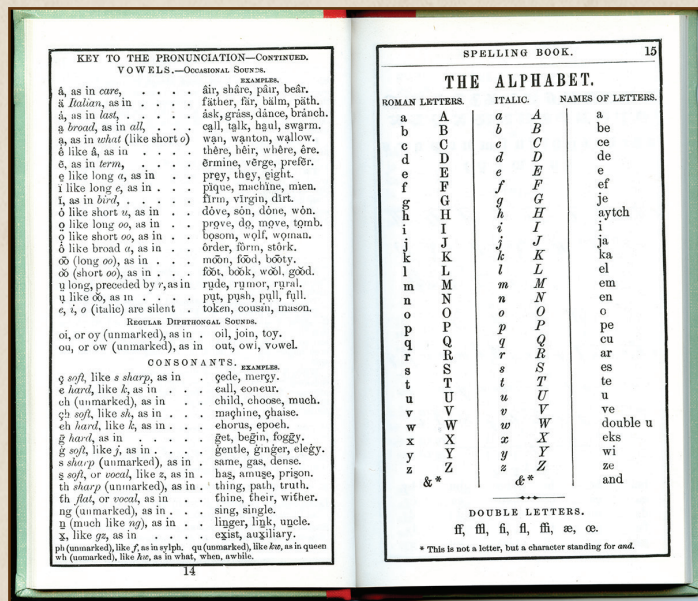 KEY TO THE PRONUNCIATION—CONTINUED.
VOWELS.—OCCASIONAL SOUNDS.
EXAMPLES.
â, as in care, . . . . âir, shâre, pâir, beâr.
ä Italian, as in . . . . fäther, fär, bälm, päth.
ȧ, as in last, . . . . ȧsk, grȧss, dȧnce, brȧnch.
a̤ broad, as in all, . . . ca̤ll, ta̤lk, ha̤ul, swa̤rm.
ạ, as in what (like short o) wạn, wạnton, wạllow.
ê like â, as in . . . . thêre, hêir, whêre, êre.
ẽ, as in term, . . . . ẽrmine, vẽrge, prefẽr.
e̱ like long a, as in . . . pre̱y, the̱y, e̱ight.
ï like long e, as in . . . pïque, machïne, mïen.
ĩ, as in bird, . . . . fĩrm, vĩrgin, dĩrt.
ȯ like short u, as in . . dȯve, sȯn, dȯne, wȯn.
o̤ like long oo, as in . . pro̤ve, do̤, mo̤ve, to̤mb.
ọ like short oo, as in . . bọsom, wọlf, wọman.
ô like broad a, as in . . ôrder, fôrm, stôrk.
o͞o (long oo), as in . . . mo͞on, fo͞od, bo͞oty.
o͝o (short oo), as in . . . fo͝ot, bo͝ok, wo͝ol, go͝od.
ṳ long, preceded by r, as in rṳde, rṳmor, rṳral.
ụ like o͝o, as in . . . . pụt, pụsh, pụll, fụll.
e, i, o (italic) are silent . token, cousin, mason.
REGULAR DIPHTHONGAL SOUNDS.
oi, or oy (unmarked), as in . oil, join, toy.
ou, or ow (unmarked), as in out, owl, vowel.
CONSONANTS.
EXAMPLES.
ç soft, like s sharp, as in . çede, merçy.
c hard, like k, as in . . . call, concur.
ch (unmarked), as in . . child, choose, much.
çh soft, like sh, as in . . maçhine, çhaise.
ch hard, like k, as in . . chorus, epoch.
ḡ hard, as in . . . . ḡet, beḡin, foḡḡy.
ġ soft, like j, as in . . . ġentle, ġinġer, eleġy.
s sharp (unmarked), as in . same, gas, dense.
s̱ soft, or vocal, like z, as in . has̱, amus̱e, pris̱on.
th sharp (unmarked), as in . thing, path, truth.
th flat, or vocal, as in . . thine, their, wither.
ng (unmarked), as in . . sing, single.
ṉ (much like ng), as in . . liṉger, liṉk, uṉcle.
x̱, like gz, as in . . . . ex̱ist, aux̱iliary.
ph (unmarked), like f, as in sylph. qu (unmarked), like kw, as in queen
wh (unmarked), like hw, as in what, when, awhile.
14
SPELLING BOOK. 15
THE ALPHABET.
ROMAN LETTERS. ITALIC. NAMES OF LETTERS.
a A a A a
b B b B be
c C c C ce
d D d D de
e E e E e
f F f F ef
g G g G je
h H h H aytch
i I i I i
j J j J ja
k K k K ka
l L l L el
m M m M em
n N n N en
o O o O o
p P p P pe
q Q q Q cu
r R r R ar
s S s S es
t T t T te
u U u U u
v V v V ve
w W w W double u
x X x X eks
y Y y Y wi
z Z z Z ze
&* &* and
DOUBLE LETTERS.
ff, ffl, fi, fl, ffi, æ, œ.
* This is not a letter, but a character standing for and.